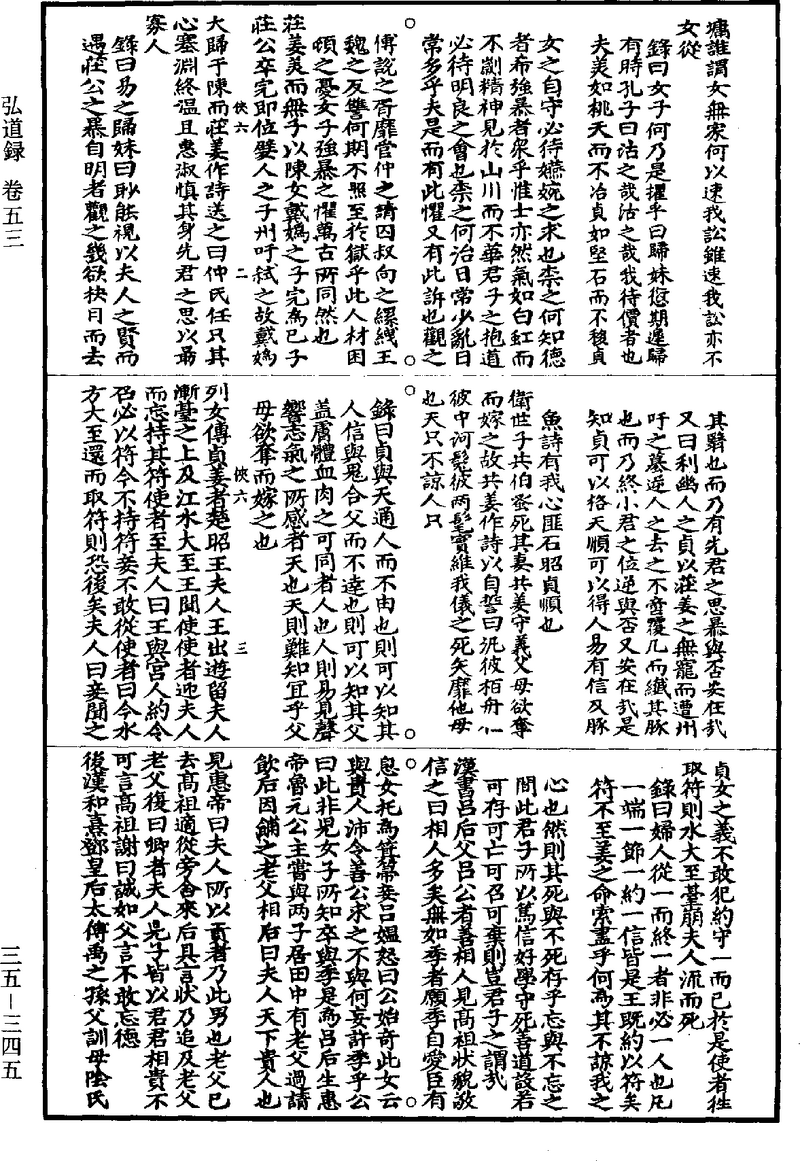 弘道録　卷五三
三五—三四五
墉誰謂女無家何以速我訟雖速我訟亦不
女從
錄曰女子何乃是擢乎曰歸妹愆期遲歸
有時孔子曰沽之哉沽之哉我待價者也
夫美如桃夭而不冶貞如堅石而不稜貞
女之自守必待嬿婉之求也柰之何知德
者希強暴者衆乎惟士亦然氣如白虹而
不劌精神見於山川而不華君子之抱道
必待明良之會也柰之何治日常少亂日
常多乎夫是而有此懼又有此訴也觀之
傅說之胥靡管仲之請囚叔向之縲絏王
魏之反讐何期不照至於獄乎此人材困
頓之憂女子強暴之懼萬古所同然也
莊姜美而無子以陳女戴媯之子完為己子
莊公卒完即位嬖人之子州吁弑之故戴媯
俠六　二
大歸于陳而莊姜作詩送之曰仲氏任只其
心塞淵終温且惠淑慎其身先君之思以勗
寡人
錄曰易之歸妹曰眇能視以夫人之賢而
遇莊公之暴自明者觀之幾欲抉目而去
其難也而乃有先君之思暴與否安在哉
又曰利幽人之貞以莊姜之無寵而遭州
吁之墓逆人之去之不啻覆几而纖其豚
也而乃終小君之位逆與否又安在哉是
知貞可以格天順可以得人易有信及豚
魚詩有我心匪石昭貞順也
衛世子共伯蚤死其妻共姜守義父母欲奪
而嫁之故共姜作詩以自誓曰汎彼柏舟在
彼中河髧彼兩髦實維我儀之死矢靡他母
也天只不諒人只
錄曰貞與天通人而不由也則可以知其
人信與鬼合父而不達也則可以知其父
盖膚體血肉之可同者人也人則易見聲
響志氣之所感者天也天則難知宜乎父
母欲奪而嫁之也
俠六　三
列女傳貞姜者楚昭王夫人王出遊留夫人
漸臺之上及江水大至王聞使使者迎夫人
而忘持其符使者至夫人曰王與宮人約令
召必以符今不持符妾不敢從使者曰今水
方大至還而取符則恐後矣夫人曰妾聞之
貞女之義不敢犯約守一而已於是使者徃
取符則水大至臺崩夫人流而死
錄曰婦人從一而終一者非必一人也凡
一端一節一約一信皆是王既約以符矣
符不至姜之命索盡乎何為其不諒我之
心也然則其死與不死存乎忘與不忘之
間此君子所以篤信好學守死善道設若
可存可亡可召可棄則豈君子之謂哉
漢書吕后父吕公者善相人見高祖狀貌敬
信之曰相人多矣無如季者願季自愛臣有
息女托為箕箒妾吕媪怒曰公始奇此女云
與貴人沛令善公求之不與何妄許季乎公
曰此非兒女子所知卒與季是為吕后生惠
帝魯元公主嘗與兩子居田中有老父過請
飲后因餔之老父相后曰夫人天下貴人也
見惠帝曰夫人所以貴者乃此男也老父已
去高祖適從旁舍來后具言狀乃追及老父
老父復曰鄉者夫人兒子皆以君君相貴不
可言高祖謝曰誠如父言不敢忘德
後漢和熹鄧皇后太傅禹之孫父訓母陰氏